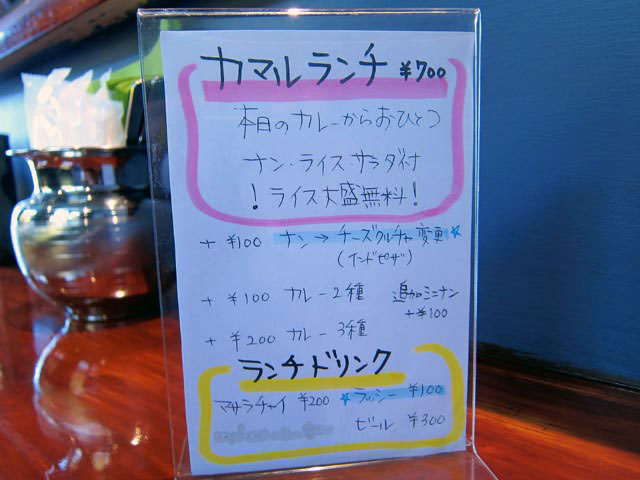 カマルランチ ¥700
本日のカレーからおひとつ
ナン・ライス・サラダ付
！ライス大盛無料！
+ ¥100 ナン→チーズクルチャ変更☆
(インドピザ)
+ ¥100 カレー2種
追加ミニナン
+¥100
+ ¥200 カレー3種
ランチドリンク
マサラチャイ ¥200
☆ラッシー ¥100
ビール ¥300